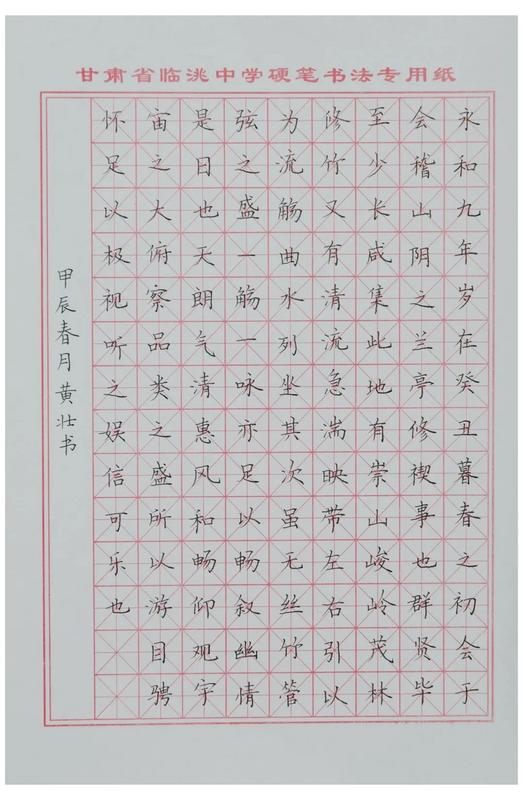 甘肃省临洮中学硬笔书法专用纸
永和九年岁在癸丑暮春之初会于
会稽山阴之兰亭修禊事也群贤毕
至少长咸集此地有崇山峻岭茂林
修竹又有清流急湍映带左右引以
为流觞曲水列坐其次虽无丝竹管
弦之盛一觞一咏亦足以畅叙幽情
是日也天朗气清惠风和畅仰观宇
宙之大俯察品类之盛所以游目骋
怀足以极视听之娱信可乐也
甲辰春月黄壮书